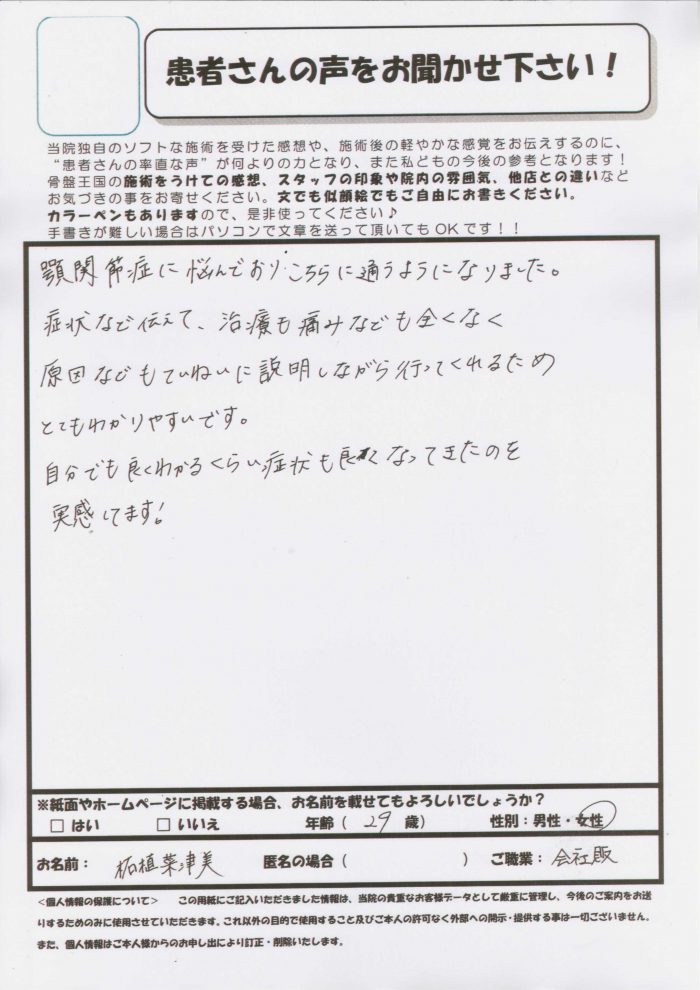 患者さんの声をお聞かせ下さい！
当院独自のソフトな施術を受けた感想や、施術後の軽やかな感覚をお伝えするのに、
“患者さんの率直な声”が何よりの力となり、また私どもの今後の参考となります！
骨盤王国の施術をうけての感想、スタッフの印象や院内の雰囲気、他店との違いなど
お気づきの事をお寄せください。文でも似顔絵でもご自由にお書きください。
カラーペンもありますので、是非使ってください♪
手書きが難しい場合はパソコンで文章を送って頂いてもOKです！！
顎関節症に悩んでおり、こちらに通うようになりました。
症状など伝えて、治療も痛みなども全くなく
原因などもていねいに説明しながら行ってくれるため
とてもわかりやすいです。
自分でも良くわかるくらい症状も良くなってきたのを
実感してます!
※紙面やホームページに掲載する場合、お名前を載せてもよろしいでしょうか？
□ はい □ いいえ 年齢（ 29 歳） 性別：男性・女性
お名前： 柘植菜津美 匿名の場合（ ） ご職業： 会社
＜個人情報の保護について＞ この用紙にご記入いただきました情報は、当院の貴重なお客様データとして厳重に管理し、今後のご案内をお送
りするためのみに使用させていただきます。これ以外の目的で使用すること及びご本人の許可なく外部への開示・提供する事は一切ございません。
また、個人情報はご本人様からのお申し出により訂正・削除いたします。